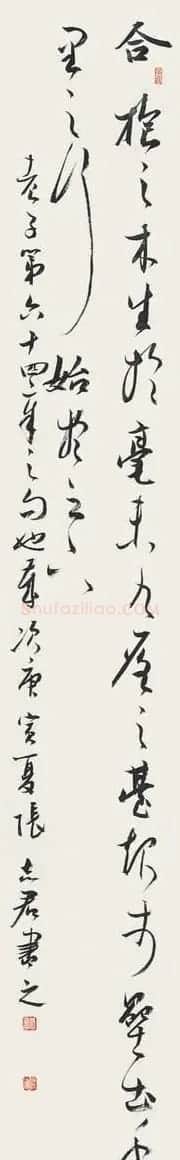 合抱之木生於毫末九層之臺起於壘土千
里之行始於足下
老子第六十四章之句也歲次庚寅夏張志君書之
Shufaziliao.com